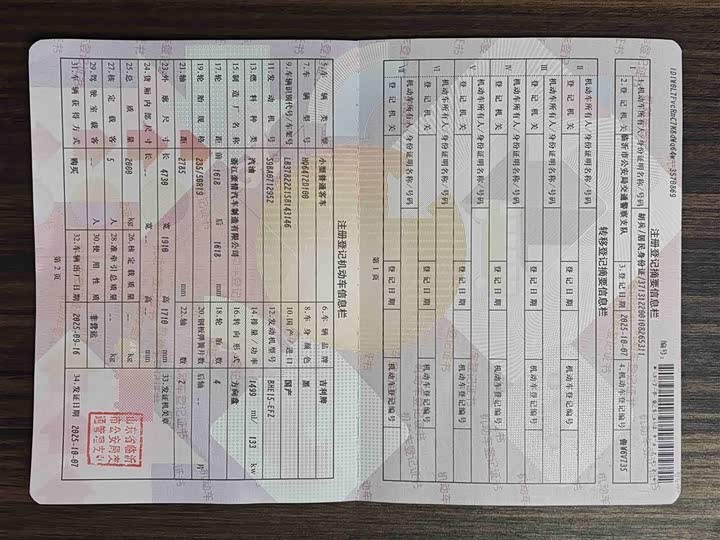 注册登记摘要信息栏
编号:
I 1.机动车所有人/身份证明名称/号码 胡兵/居民身份证/
2.登记机关 临沂市公安局交通警察支队 3.登记日期 2025-10-07 4.机动车登记编号 鲁W6V735
转移登记摘要信息栏
II 机动车所有人/身份证明名称/号码
登记机关 登记日期 机动车登记编号
III 机动车所有人/身份证明名称/号码
登记机关 登记日期 机动车登记编号
IV 机动车所有人/身份证明名称/号码
登记机关 登记日期 机动车登记编号
V 机动车所有人/身份证明名称/号码
登记机关 登记日期 机动车登记编号
VI 机动车所有人/身份证明名称/号码
登记机关 登记日期 机动车登记编号
VII 机动车所有人/身份证明名称/号码
登记机关 登记日期 机动车登记编号
第 1 页
注册登记机动车信息栏
5.车辆类型 小型普通客车 6.车辆品牌 吉利牌
7.车辆型号 HQ6472D100 8.车身颜色 黑
9.车辆识别代号/车架号 10.国产/进口 国产
11.发动机号 12.发动机型号 BHE15-EFZ
13.燃料种类 汽油 14.排量/功率 1499 ml/ 133 kw
15.制造厂名称 浙江豪情汽车制造有限公司 16.转向形式 方向盘
17.轮距 前 1618 后 1618 mm 18.轮胎数 4
19.轮胎规格 235/50R19 20.钢板弹簧片数 后轴 -- 片
21.轴距 2785 mm 22.轴数 2
23.外廓尺寸 长 4730 宽 1910 高 1710 mm 33.发证机关章
24.货厢内部尺寸 长 -- 宽 -- 高 -- mm
25.总质量 2080 kg 26.核定载质量 -- kg
27.核定载客 5 人 28.准牵引总质量 -- kg
29.驾驶室载客 -- 人 30.使用性质 非营运
31.车辆获得方式 购买 32.车辆出厂日期 2025-09-16 34.发证日期 2025-10-07
第 2 页